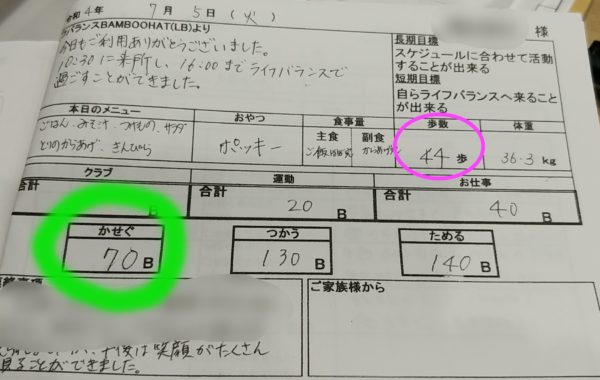 令和4年 7月5日(火)
様
イフバランスBAMBOOHAT(LB)より
今日もご利用ありがとうございました。
10:30に来所し、16:00までライフバランスで
過ごすことができました。
長期目標
スケジュールに合わせて活動
することが出来る
短期目標
自らライフバランスへ来ること
が出来る
本日のメニュー おやつ 食事量 歩数 体重
主食 副食
ごはん、みそ汁、つけもの、サラダ
とりのからあげ、きんぴら
ポッキー
ご飯 からあげ
44 歩
36.3 kg
クラブ 運動 お仕事
合計 B 合計 20 B 合計 40 B
かせぐ つかう ためる
70 B 130 B 140 B
ご家族様から
午後は笑顔がたくさん
見ることができました。